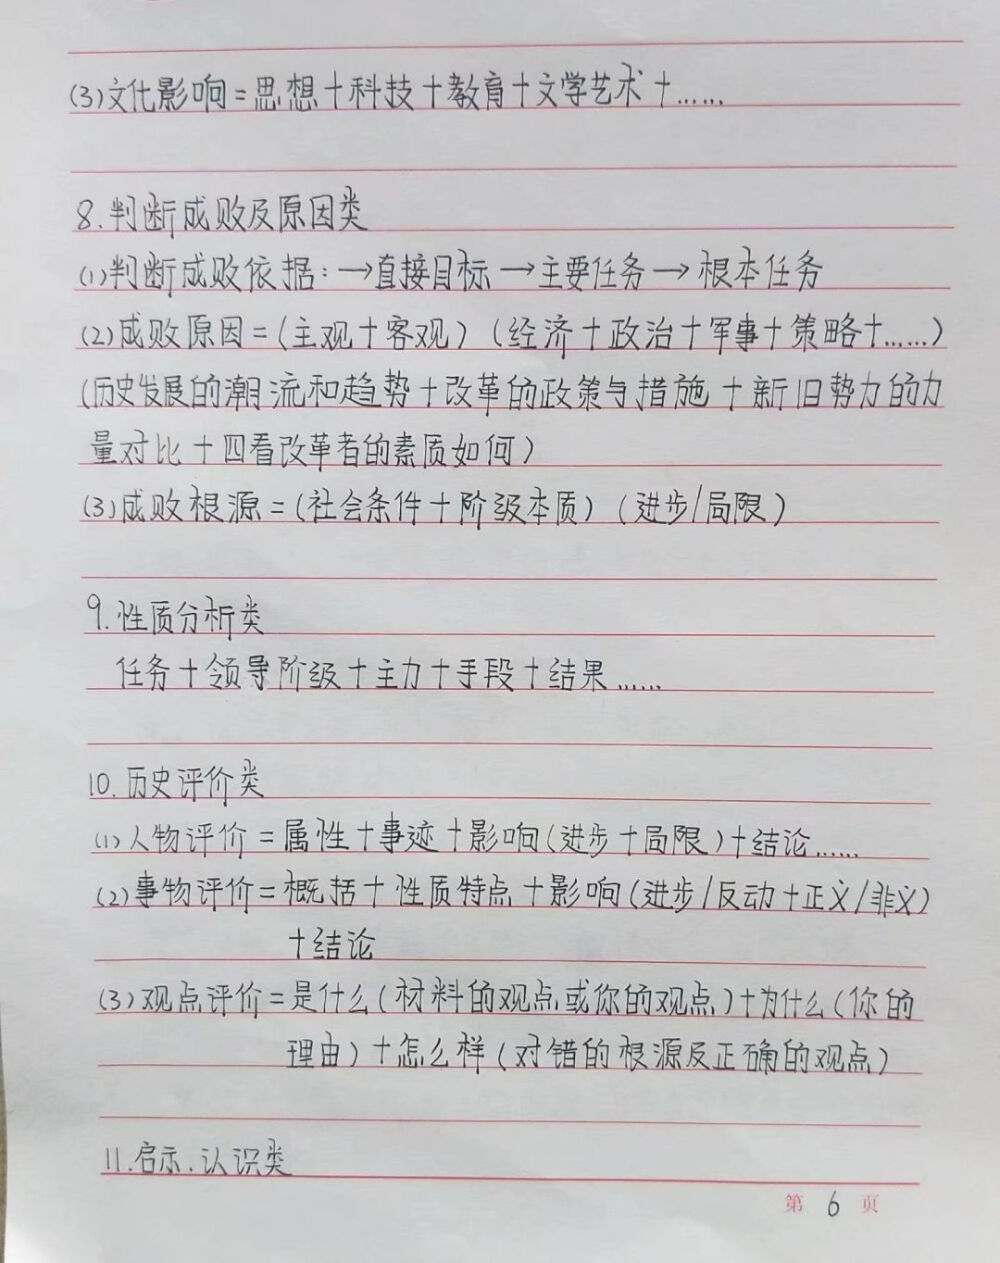 (3)文化影响=思想+科技+教育+文学艺术+……
8.判断成败及原因类
(1)判断成败依据:→直接目标→主要任务→根本任务
(2)成败原因=(主观+客观)(经济+政治+军事+策略+……)
(历史发展的潮流和趋势+改革的政策与措施+新旧势力的力
量对比+四看改革者的素质如何)
(3)成败根源=(社会条件+阶级本质)(进步/局限)
9.性质分析类
任务+领导阶级+主力+手段+结果……
10.历史评价类
(1)人物评价=属性+事迹+影响(进步+局限)+结论……
(2)事物评价=概括+性质特点+影响(进步/反动+正义/非义)
+结论
(3)观点评价=是什么(材料的观点或你的观点)+为什么(你的
理由)+怎么样(对错的根源及正确的观点)
11.启示.认识类
第6页